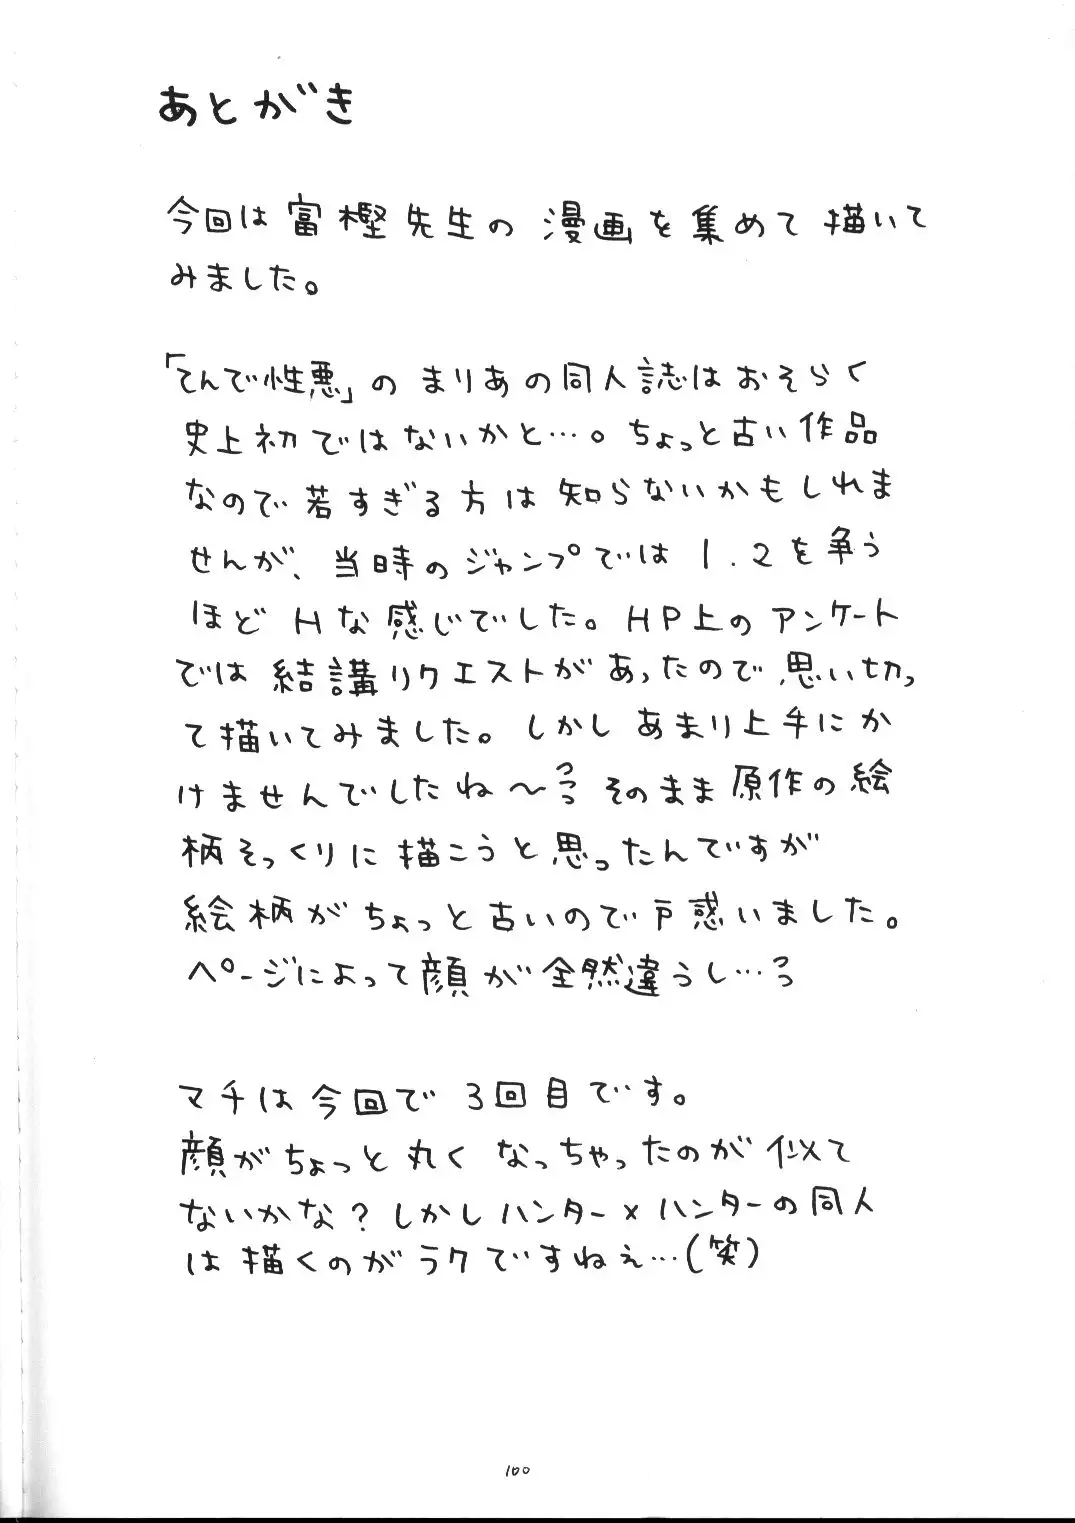 あとがき
今回は富樫先生の漫画を集めて描いて
みました。
「てんで性悪」のまりあの同人誌はおそらく
史上初ではないかと…。ちょっと古い作品
なので若すぎる方は知らないかもしれま
せんが、当時のジャンプでは1.2を争う
ほどHな感じでした。HP上のアンケート
では結講リクエストがあったので思い切っ
て描いてみました。しかしあまり上手にか
けませんでしたね〜そのまま原作の絵
柄そっくりに描こうと思ったんですが
絵柄がちょっと古いので戸惑いました。
ページによって顔が全然違うし…
マチは今回で3回目です。
顔がちょっと丸くなっちゃったのが似て
ないかな?しかしハンター×ハンターの同人
は描くのがラクですねぇ…(笑)
100